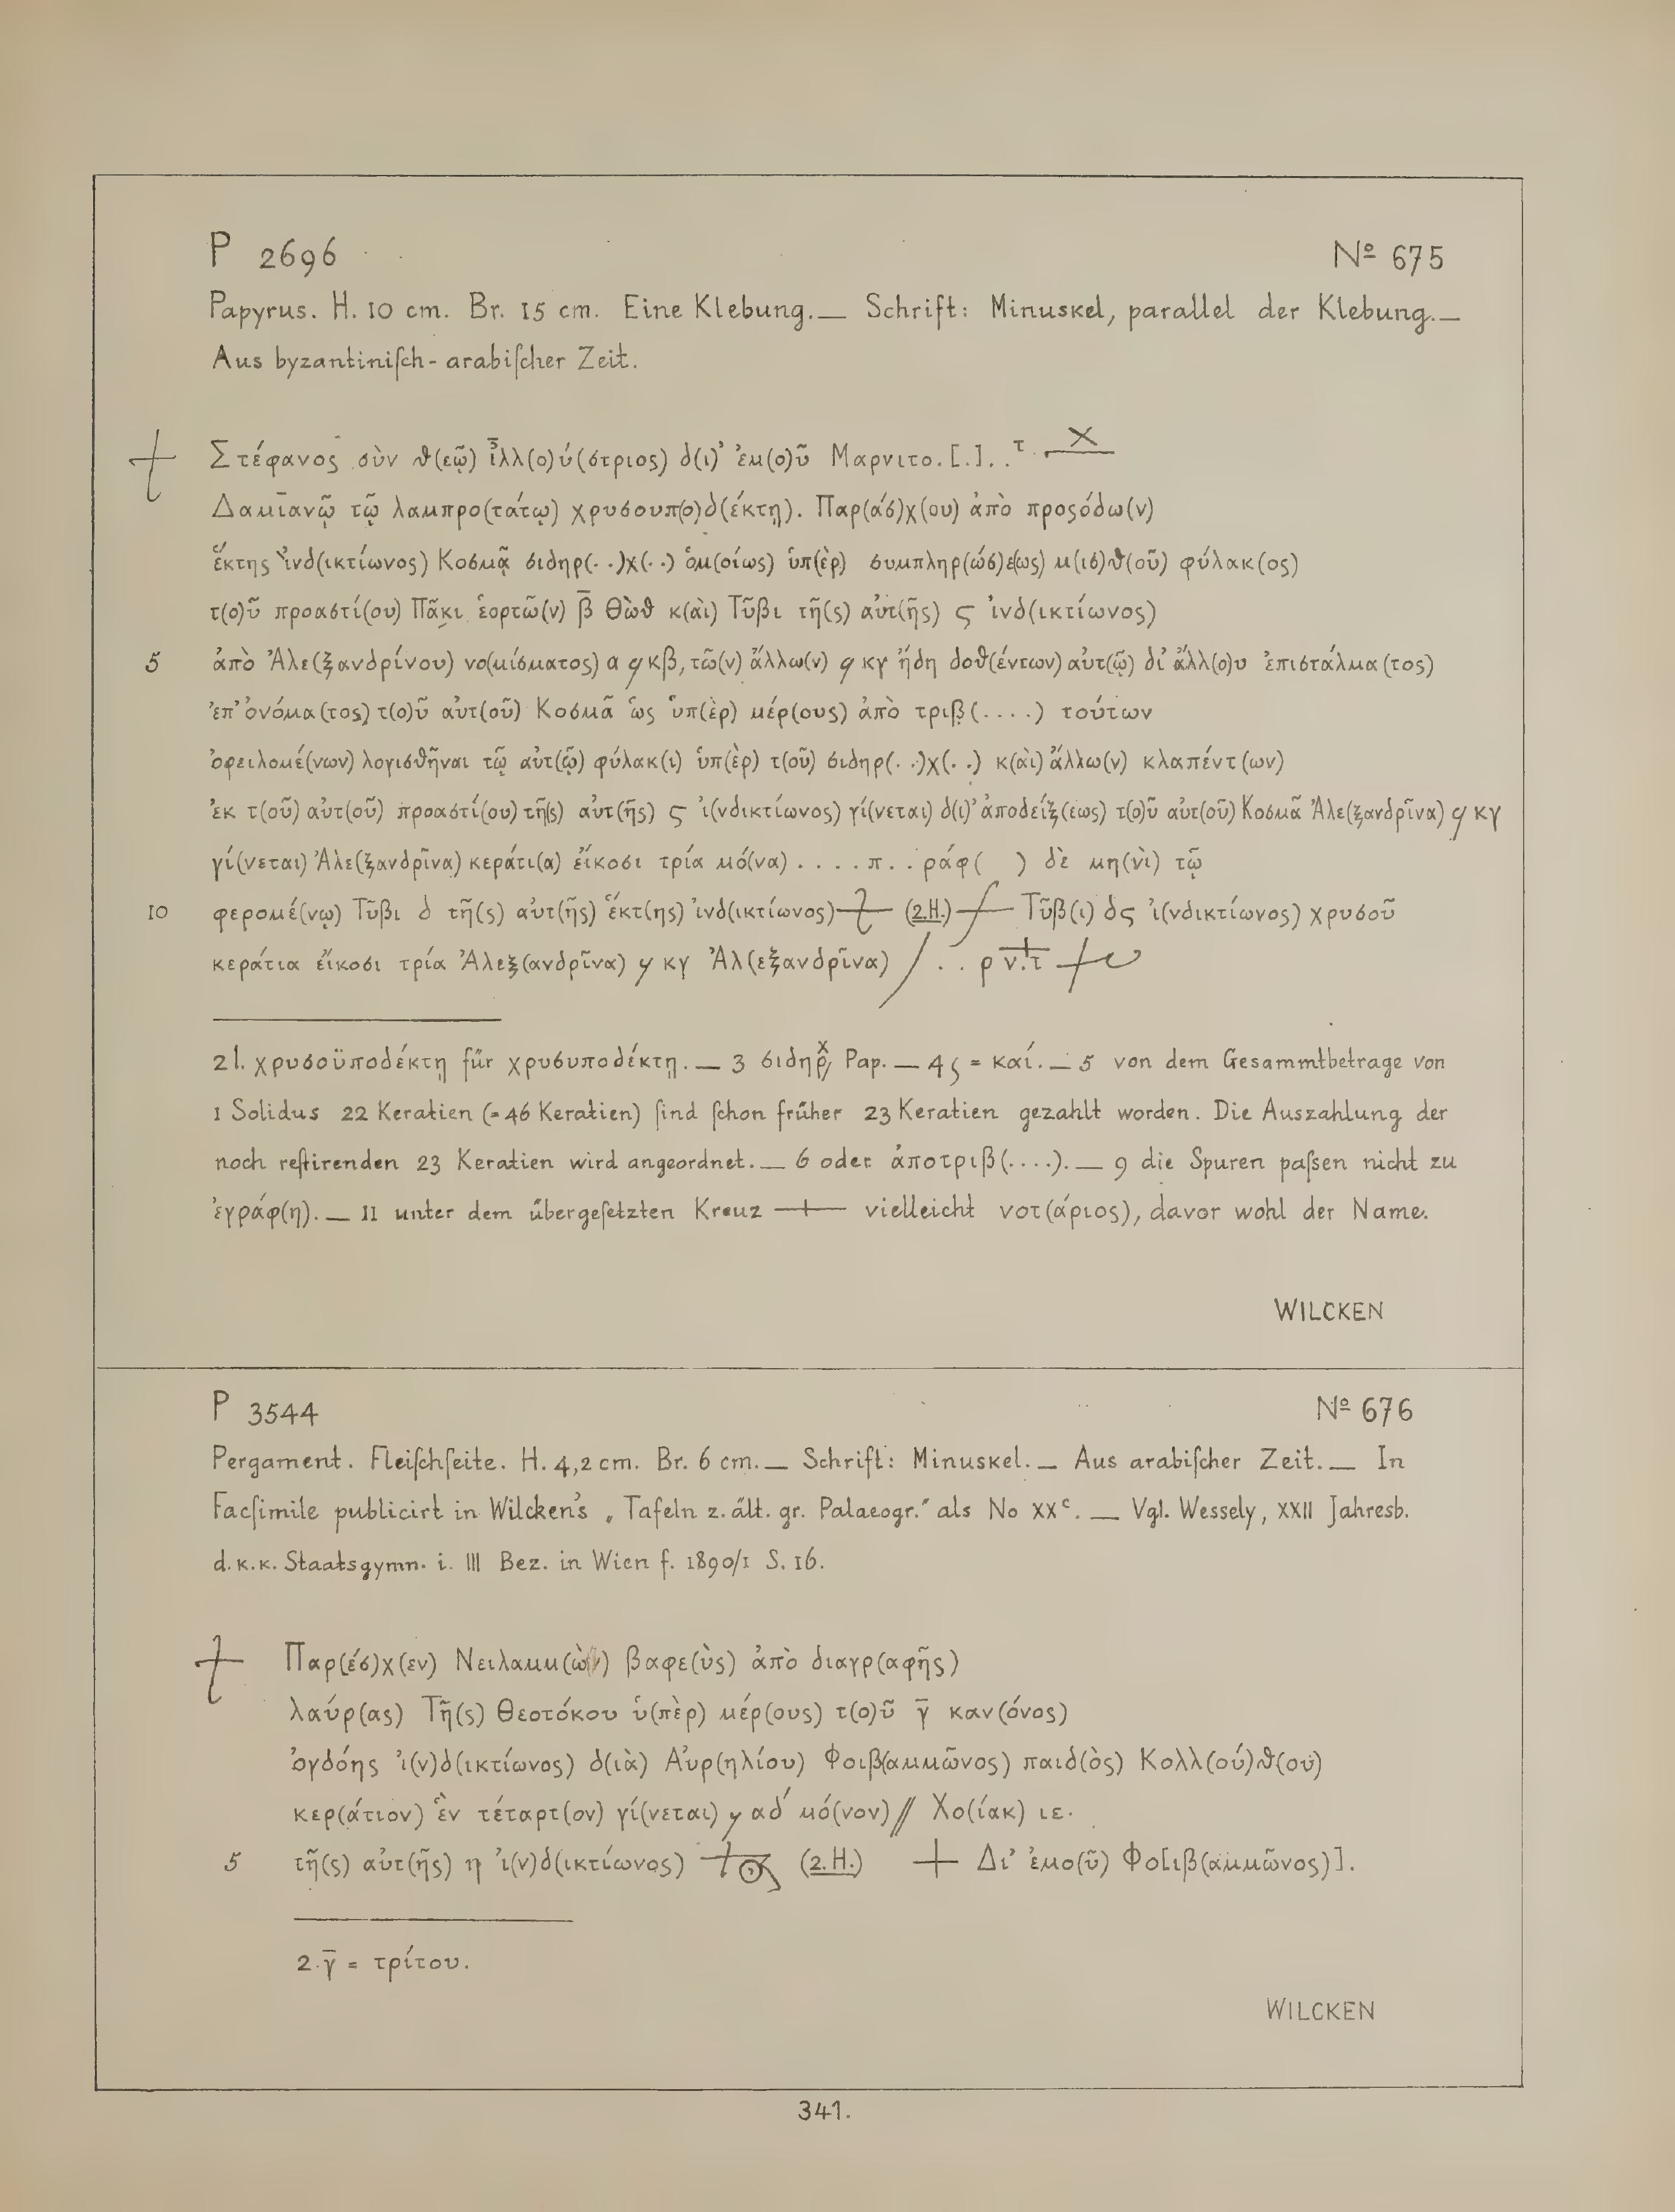 P 2696 Nº 675
Papyrus. H. 10 cm. Br. 15 cm. Eine Klebung.— Schrift: Minuskel, parallel der Klebung.—
Aus byzantiniſch-arabiſcher Zeit.
Στέφανος σὺν θ(εῷ) ἰλλ(ο)ύ(στριος) δ(ι)' ἐμ(ο)ῦ Μαρνιτο.[.]..τ.
Δαμιανῷ τῷ λαμπρο(τάτῳ) χρυσουπ(ο)δ(έκτῃ). Παρ(άσ)χ(ου) ἀπὸ προσόδω(ν)
ἕκτης ἰνδ(ικτίωνος) Κοσμᾷ σιδηρ(..)χ(..) ὁμ(οίως) ὑπ(ὲρ) συμπληρ(ώσ)ε(ως) μ(ισ)θ(οῦ) φύλακ(ος)
τ(ο)ῦ προαστί(ου) Πᾶκι ἑορτῶ(ν) β̄ Θὼθ κ(αὶ) Τῦβι τῆ(ς) αὐτ(ῆς) ϛ ἰνδ(ικτίωνος)
5 ἀπὸ Ἀλε(ξανδρίνου) νο(μίσματος) α ϥ κβ, τῶ(ν) ἄλλω(ν) ϥ κγ ἤδη δοθ(έντων) αὐτ(ῷ) δι' ἄλλ(ο)υ ἐπιστάλμα(τος)
ἐπ' ὀνόμα(τος) τ(ο)ῦ αὐτ(οῦ) Κοσμᾶ ὡς ὑπ(ὲρ) μέρ(ους) ἀπὸ τριβ(....) τούτων
ὀφειλομέ(νων) λογισθῆναι τῷ αὐτ(ῷ) φύλακ(ι) ὑπ(ὲρ) τ(οῦ) σιδηρ(..)χ(..) κ(αὶ) ἄλλω(ν) κλαπέντ(ων)
ἐκ τ(οῦ) αὐτ(οῦ) προαστί(ου) τῆ(ς) αὐτ(ῆς) ϛ ἰ(νδικτίωνος) γί(νεται) δ(ι)' ἀποδείξ(εως) τ(ο)ῦ αὐτ(οῦ) Κοσμᾶ Ἀλε(ξανδρῖνα) ϥ κγ
γί(νεται) Ἀλε(ξανδρῖνα) κεράτι(α) εἴκοσι τρία μό(να) ....π..ράφ( ) δὲ μη(νὶ) τῷ
10 φερομέ(νῳ) Τῦβι δ τῆ(ς) αὐτ(ῆς) ἕκτ(ης) ἰνδ(ικτίωνος) (2.H.) Τῦβ(ι) δ ϛ ἰ(νδικτίωνος) χρυσοῦ
κεράτια εἴκοσι τρία Ἀλεξ(ανδρῖνα) ϥ κγ Ἀλ(εξανδρῖνα) / .. ρ ν.τ
2 l. χρυσοϋποδέκτῃ für χρυσυποδέκτῃ.— 3 σιδηρχ/ Pap.— 4 ϛ = καί.— 5 von dem Gesammtbetrage von
1 Solidus 22 Keratien (= 46 Keratien) ſind ſchon früher 23 Keratien gezahlt worden. Die Auszahlung der
noch reſtirenden 23 Keratien wird angeordnet.— 6 oder ἀποτριβ(....).— 9 die Spuren paſsen nicht zu
ἐγράφ(η).— 11 unter dem übergeſetzten Kreuz + vielleicht νοτ(άριος), davor wohl der Name.
WILCKEN
P 3544 Nº 676
Pergament. Fleiſchſeite. H. 4,2 cm. Br. 6 cm.— Schrift: Minuskel.— Aus arabiſcher Zeit.— In
Facſimile publicirt in Wilcken's „Tafeln z. ält. gr. Palaeogr." als No XXᶜ.— Vgl. Wessely, XXII Jahresb.
d. K. K. Staatsgymn. i. III Bez. in Wien f. 1890/1 S. 16.
Παρ(έσ)χ(εν) Νειλαμμ(ὼν) βαφε(ὺς) ἀπὸ διαγρ(αφῆς)
λαύρ(ας) Τῆ(ς) Θεοτόκου ὑ(πὲρ) μέρ(ους) τ(ο)ῦ γ̄ καν(όνος)
ὀγδόης ἰ(ν)δ(ικτίωνος) δ(ιὰ) Αὐρ(ηλίου) Φοιβ(αμμῶνος) παιδ(ὸς) Κολλ(ού)θ(ου)
κερ(άτιον) ἓν τέταρτ(ον) γί(νεται) ϥ αδ´ μό(νον) // Χο(ίακ) ιε.
5 τῆ(ς) αὐτ(ῆς) η ἰ(ν)δ(ικτίωνος) (2.H.) + Δι' ἐμο(ῦ) Φο[ιβ(αμμῶνος)].
2. γ̄ = τρίτου.
WILCKEN
341.